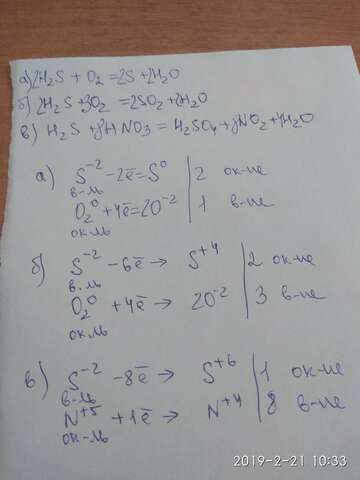 а) 2H₂S + O₂ = 2S + 2H₂O
б) 2H₂S + 3O₂ = 2SO₂ + 2H₂O
в) H₂S + 8HNO₃ = H₂SO₄ + 8NO₂ + 4H₂O
а) S⁻² - 2ē = S⁰ | 2 ок-ие
в-ль
O₂⁰ + 4ē = 2O⁻² | 1 в-ие
ок-ль
б) S⁻² - 6ē → S⁺⁴ | 2 ок-ие
в-ль
O₂⁰ + 4ē → 2O⁻² | 3 в-ие
ок-ль
в) S⁻² - 8ē → S⁺⁶ | 1 ок-ие
в-ль
N⁺⁵ + 1ē → N⁺⁴ | 8 в-ие
ок-ль
2019-2-21 10:33